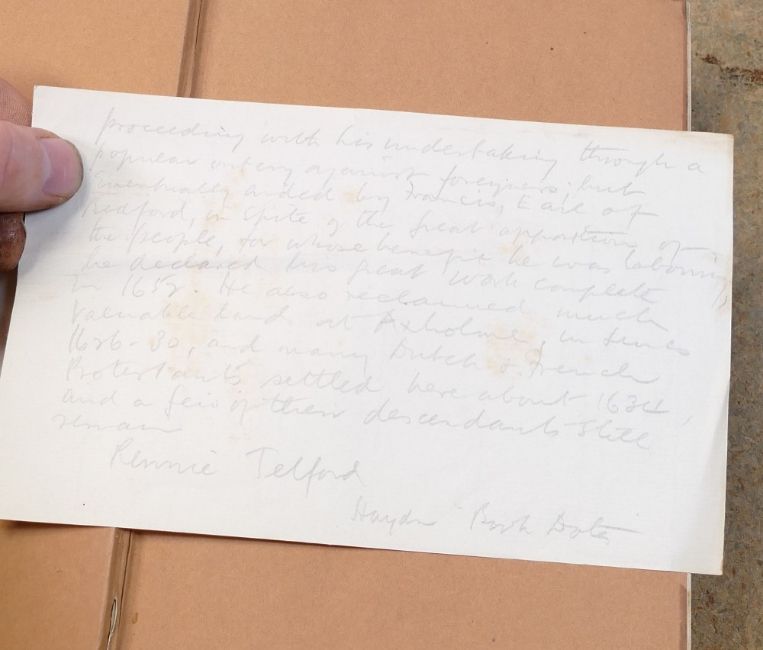 proceeding with his undertaking through a
popular outcry against foreigners; but
eventually aided by Francis, Earl of
Bedford, in spite of the great opposition of
the people, for whose benefit he was labouring,
he declared his great work complete
in 1652. He also reclaimed much
valuable land at Axholme, in Lincs
1626-30, and many Dutch & French
Protestants settled here about 1634,
and a few of their descendants still
remain
Rennie Telford
Haydn Book Dates